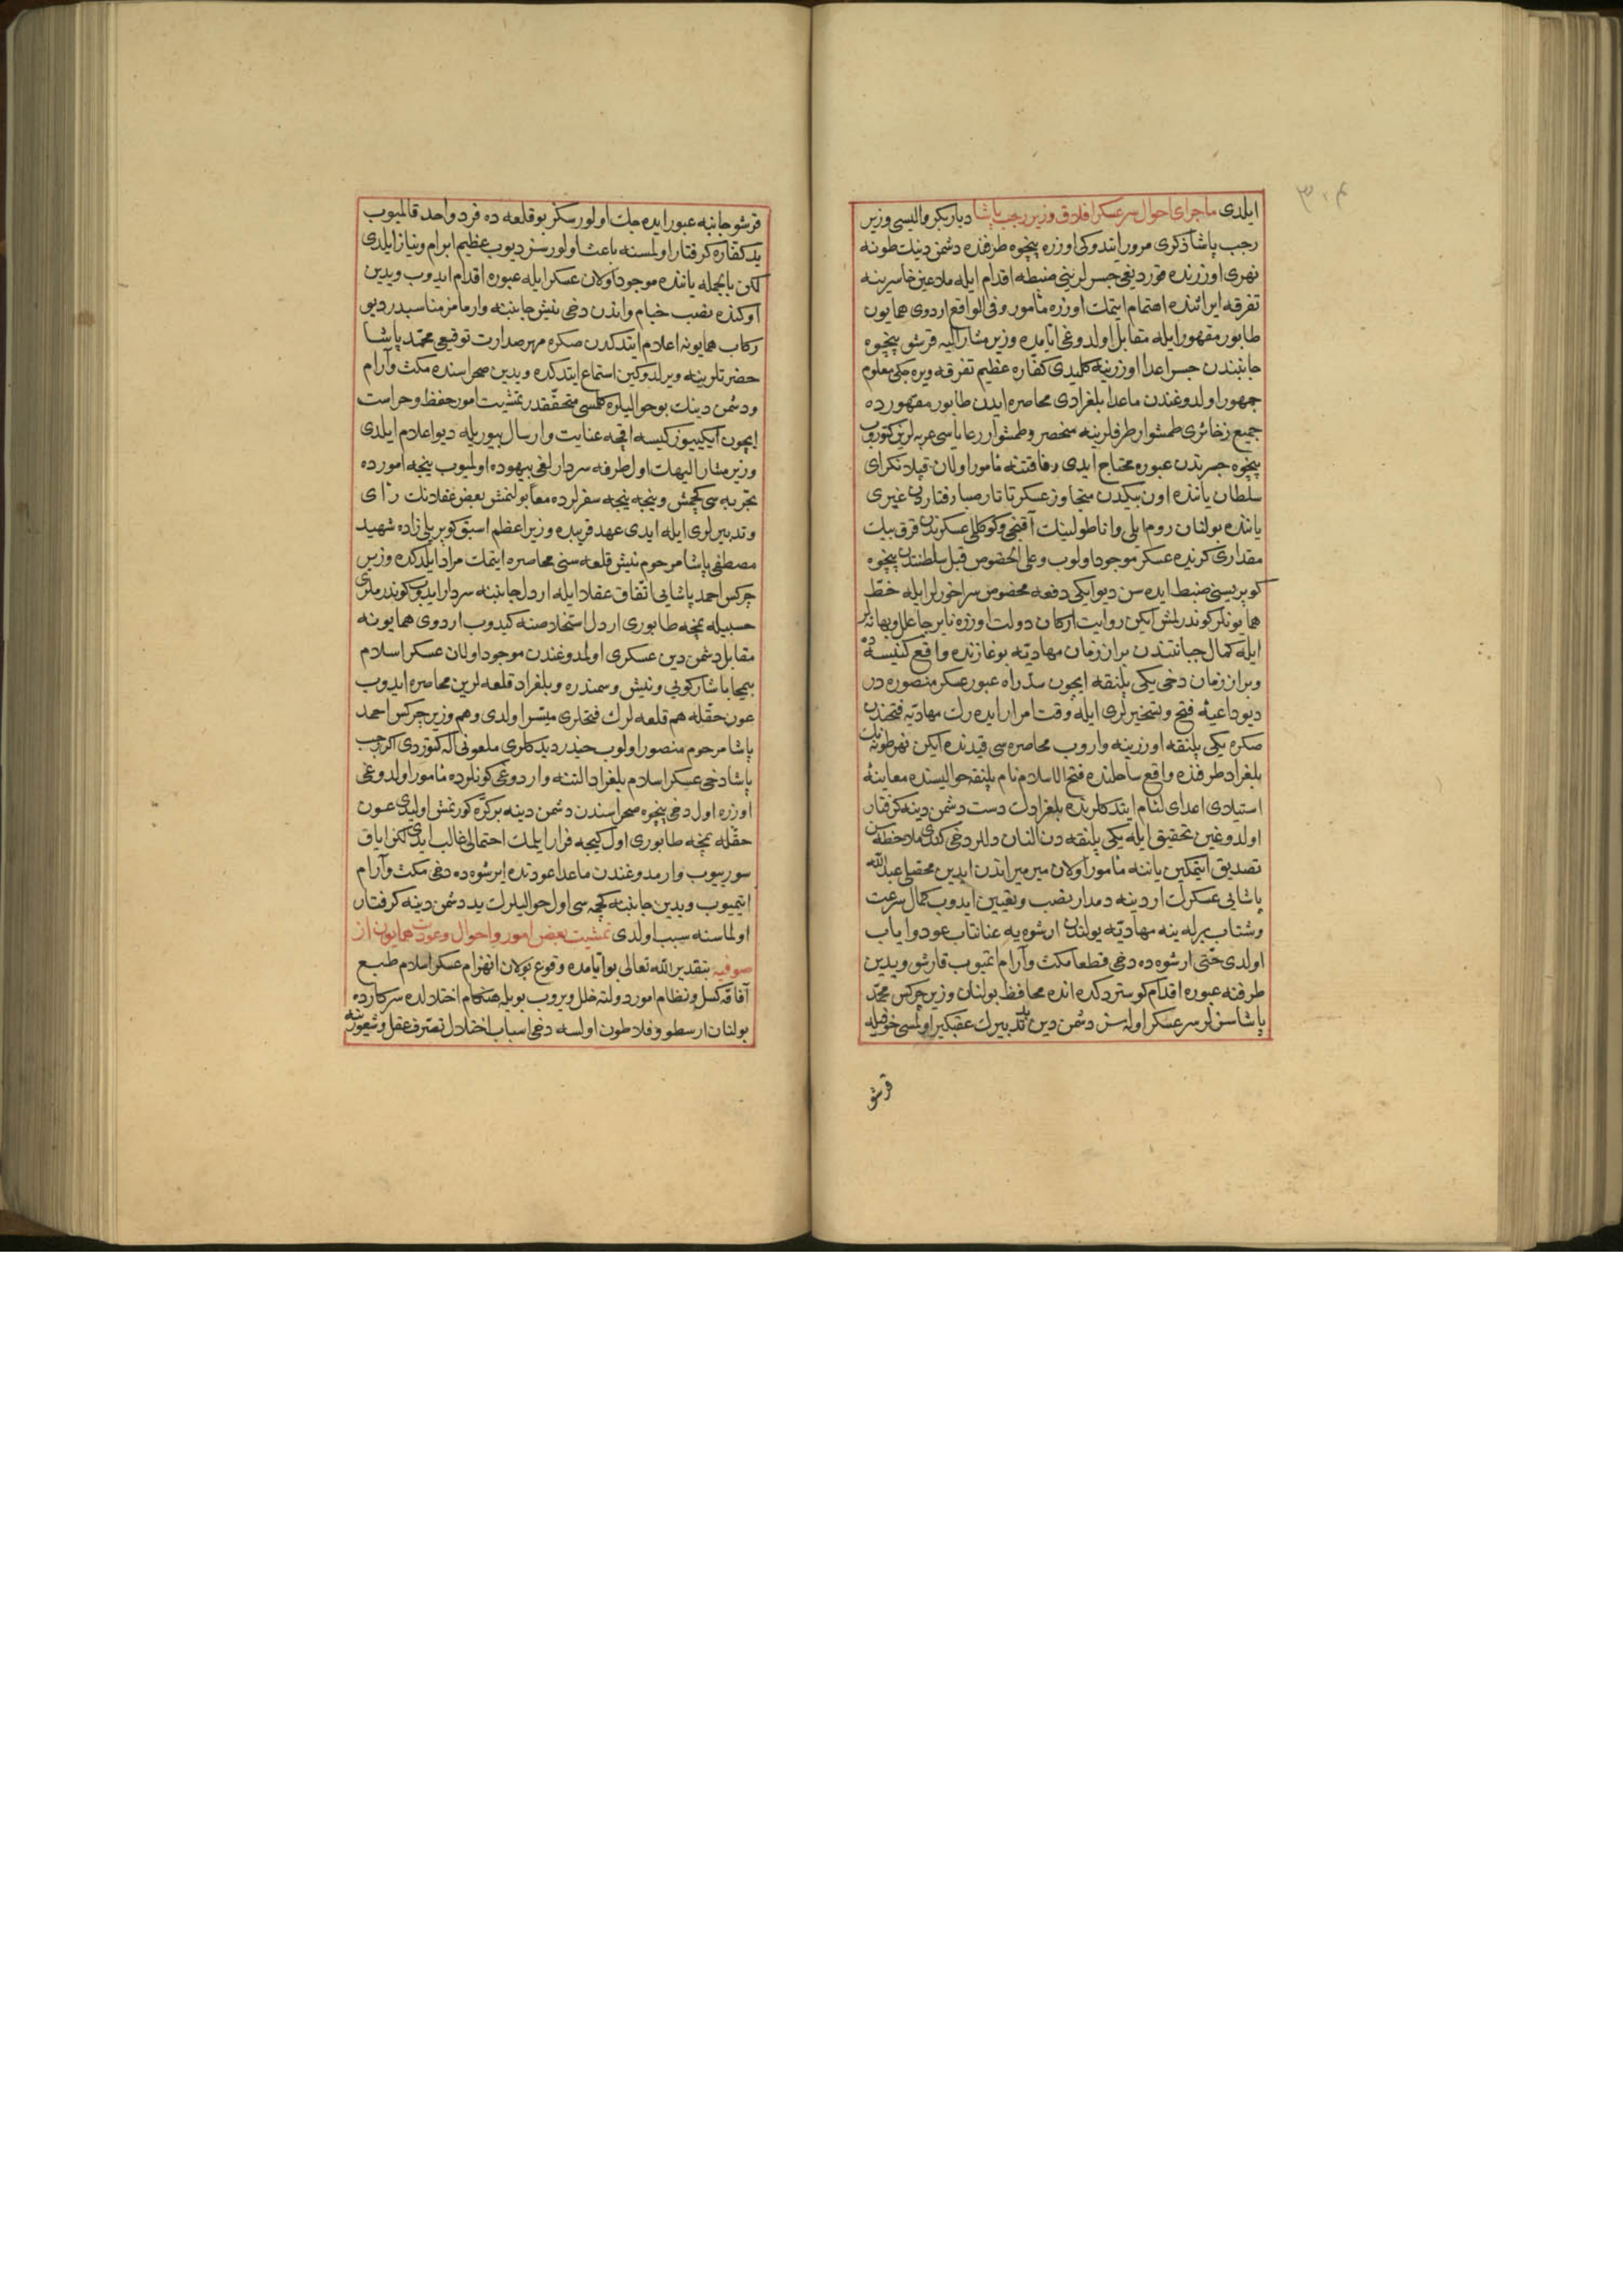 ٣٠٤
ايلدى ماجراى احوال سرعسكر افلاق وزير رجب پاشا ديار بكر واليسى وزير
رجب پاشا ذكرى مرور ايتدوكى اوزره پنچوه طرفنده دشمن دينك طونه
نهرى اوزرنده قورديغى جسرلرينى ضبطه اقدام ايله ملاعين خاسرينه
تفرقه ايراثنده اهتمام ايتمك اوزره مأمور وفى الواقع اردوى همايون
طابور مقهور ايله مقابل اولدوغى اياملرده وزير مشار اليه قرشو پنچوه
جانبندن جسر اعدا اوزرينه كليدى كفاره عظيم تفرقه ويره جكى معلوم
جمهور اولدوغندن ماعدا بلغرادى محاصره ايدن طابور مقهورده
جميع ذخائرى طمشوار طرفلرينه منحصر وطمشوار رعاياسى عربه لرين كتوروب
پنچوه جسرندن عبوره محتاج ايدى رفاقتنه مأمور اولان قپلانكراى
سلطان ياننده اون بيكدن متجاوز عسكر تاتار صبارفتاردن غيرى
ياننده بولنان روم ايلى واناطولينك آقنجى وكوكللى عسكرندن قرق بيك
مقدارى كزيده عسكر موجود اولوب وعلى الخصوص قبل سلطنتدن پنچوه
كوپريسنى ضبط ايده سن ديو ايكى دفعه مخصوص ميراخورلر ايله خط
همايونلر كوندرلمش ايكن روايت اركان دولت اوزره نابرجا علل وبهانه لر
ايله كمال جبانتندن بر از زمان مهاديه بوغازنده واقع كنيسه ده
وبر از زمان دخى يكى پلنقه ايچون سد راه عبور عسكر منصوره در
ديو داعيه فتح وتسخيرلرى ايله وقت امرار ايده رك مهاديه فتحندن
صكره يكى پلنقه اوزرينه واروب محاصره سى قيدنده ايكن نهر طونه نك
بلغراد طرفنده واقع ساحلنده فتح الاسلام نام پلنقه حواليسنده معاينه
استيلاى اعداى لئام ايتدكلرنده بلغرادك دست دشمن دينه كرفتار
اولدوغين تحقيق ايله يكى پلنقه دن النان دللر دخى كندى ملاحظه سن
تصديق ايتمكين ياننه مأمور اولان ميرميراندن ايدين محصلى عبدالله
پاشايى عسكرك اردينه دمدار نصب وتعيين ايدوب كمال سرعت
وشتاب برله ينه مهاديه يولندن ارشوه يه عنانتاب عود واياب
اولدى حتى ارشوه ده دخى قطعا مكث وآرام ايتميوب قارشو ويدين
طرفنه عبوره اقدام كوستردكده انده محافظ بولنان وزير چركس محمد
پاشا سز لر سرعسكر اولهسز دشمن دين بلا تدبيرك عقبكير اولمسى خوفيله
قرشو
قرشو جانبه عبور ايده جك اولورسكز بو قلعه ده فرد واحد قالميوب
يد كفاره كرفتار اولمسنه باعث اولورسز ديوب عظيم ابرام ونياز ايلدى
لكن بالجمله ياننده موجود اولان عسكر ايله عبوره اقدام ايدوب ويدين
اوكنده نصب خيام واندن دخى نيش جانبنه وارمامز مناسبدر ديو
ركاب همايونه اعلام ايتدكدن صكره مهر صدارت توقيعى محمد پاشا
حضرتلرينه ويرلدوكين استماع ايتدكده ويدين صحراسنده مكث وآرام
ودشمن دينك بو حواليلره كلمسى متحققدر تمشيت امور حفظ وحراست
ايچون ايكييوز كيسه اقچه عنايت وارسال بيوريله ديو اعلام ايلدى
وزير مشار اليهك اول طرفه سردارلغى بيهوده اولميوب نيجه امورده
تجربه سى كچمش ونيجه نيجه سفرلرده معا بولنمش بعض عقلانك رأى
وتدبيرلرى ايله ايدى عهد قريبده وزير اعظم اسبق كوپريلى زاده شهيد
مصطفى پاشا مرحوم نيش قلعه سنى محاصره ايتمك مراد ايلدكده وزير
چركس احمد پاشايى اتفاق عقلا ايله اردل جانبنه سردار ايدوب كوندرملرى
حسبيله نمچه طابورى اردل استخلاصنه كيدوب اردوى همايونه
مقابل دشمن دين عسكرى اولمدوغندن موجود اولان عسكر اسلام
بيمحابا شاركويى ونيش وسمندره وبلغراد قلعه لرين محاصره ايدوب
عون حقله هم قلعه لرك فتحلرى ميسر اولدى وهم وزير چركس احمد
پاشا مرحوم منصور اولوب حيدر ديدكلرى ملعونى اله كتوردى اكر رجب
پاشا دخى عسكر اسلام بلغراد التنه واردوغى كونلرده مأمور اولدوغى
اوزره اول دخى پنچوه صحراسندن دشمن دينه بر كره كورنمش اوليدى عون
حقله نمچه طابورى اول كيجه فرار ايلمك احتمالى غالب ايدى لكن اياق
سورييوب وارمدوغندن ماعدا عودتنده ايرشوه ده دخى مكث وآرام
ايتميوب ويدين جانبنه كچمه سى اول حواليلرك يد دشمن دينه كرفتار
اولماسنه سبب اولدى تمشيت بعض امور واحوال وعودت همايون از
صوفيه بتقدير الله تعالى بو اياملرده وقوع بولان انهزام عسكر اسلام طبع
آفاقه كسل ونظام امور دولته خلل ويروب بويله هنكام اختلالده سر كارده
بولنان ارسطو وفلاطون اولسه دخى اسباب اختلال تصرف عقل وشعورينه